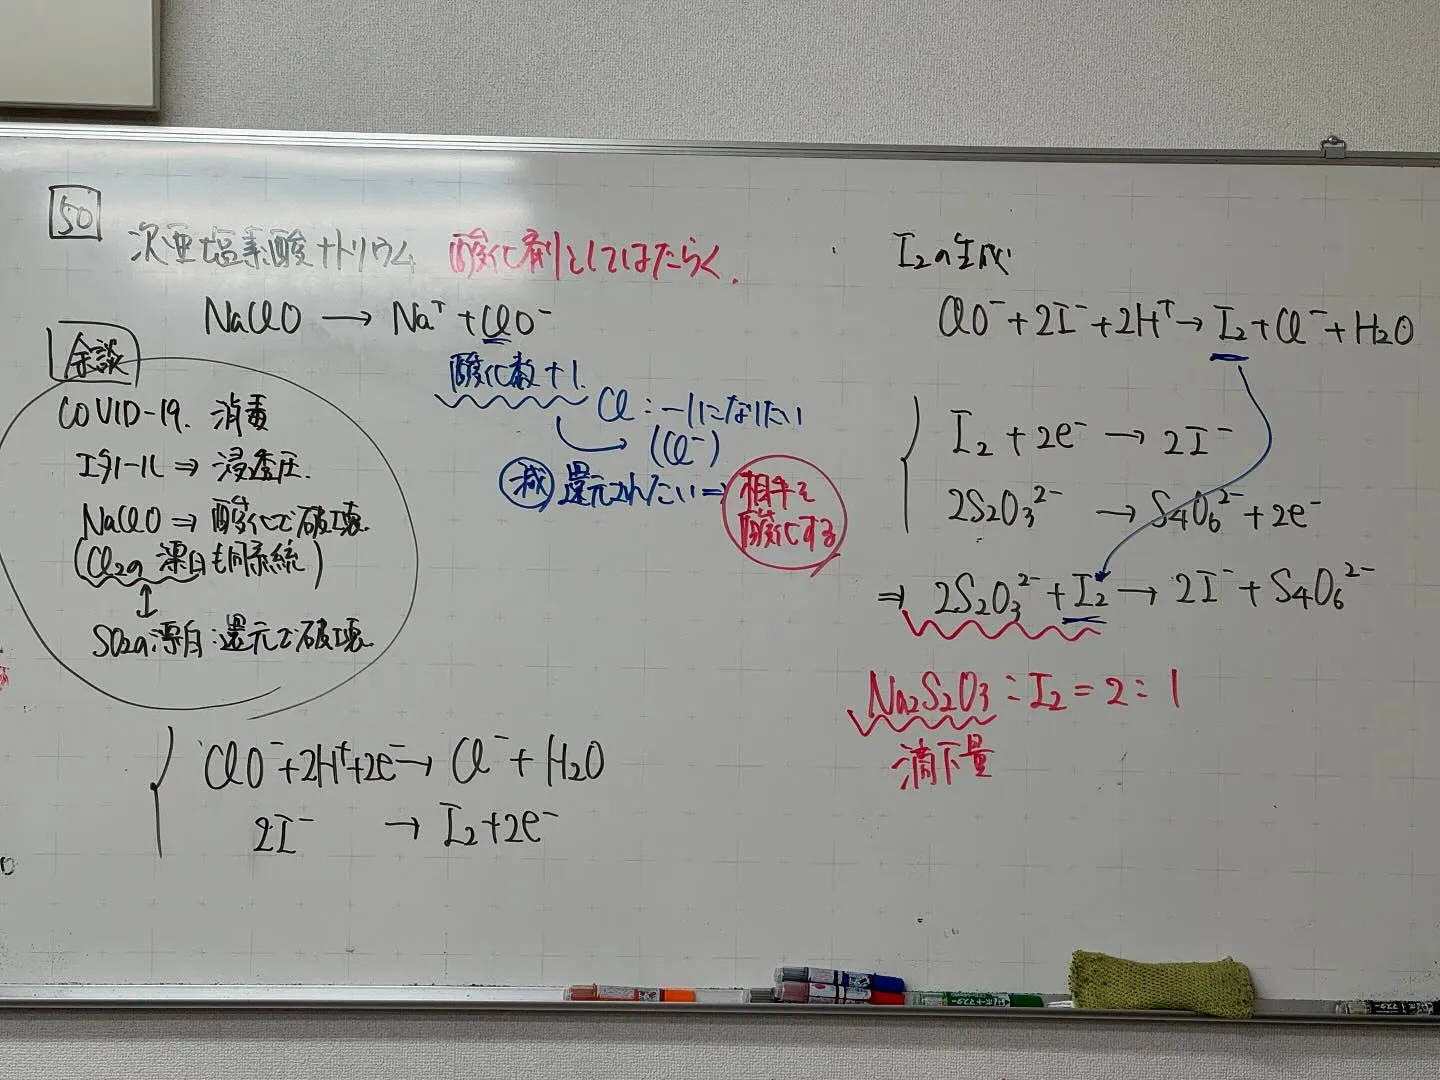 50
次亜塩素酸ナトリウム 酸化剤としてはたらく.
NaClO → Na⁺ + ClO⁻
酸化数+1.
Cl : -1になりたい
(Cl⁻)
減 還元されたい ⇒ 相手を
酸化する
余談
COVID-19. 消毒
エタノール ⇒ 浸透圧.
NaClO ⇒ 酸化で破壊.
(Cl₂の漂白も同系統)
↕
SO₂の漂白:還元で破壊.
ClO⁻+2H⁺+2e⁻ → Cl⁻ + H₂O
2I⁻ → I₂+2e⁻
I₂の生成
ClO⁻+2I⁻+2H⁺ → I₂+Cl⁻+H₂O
I₂ + 2e⁻ → 2I⁻
2S₂O₃²⁻ → S₄O₆²⁻ + 2e⁻
⇒ 2S₂O₃²⁻ + I₂ → 2I⁻ + S₄O₆²⁻
Na₂S₂O₃ : I₂ = 2 : 1
滴下量